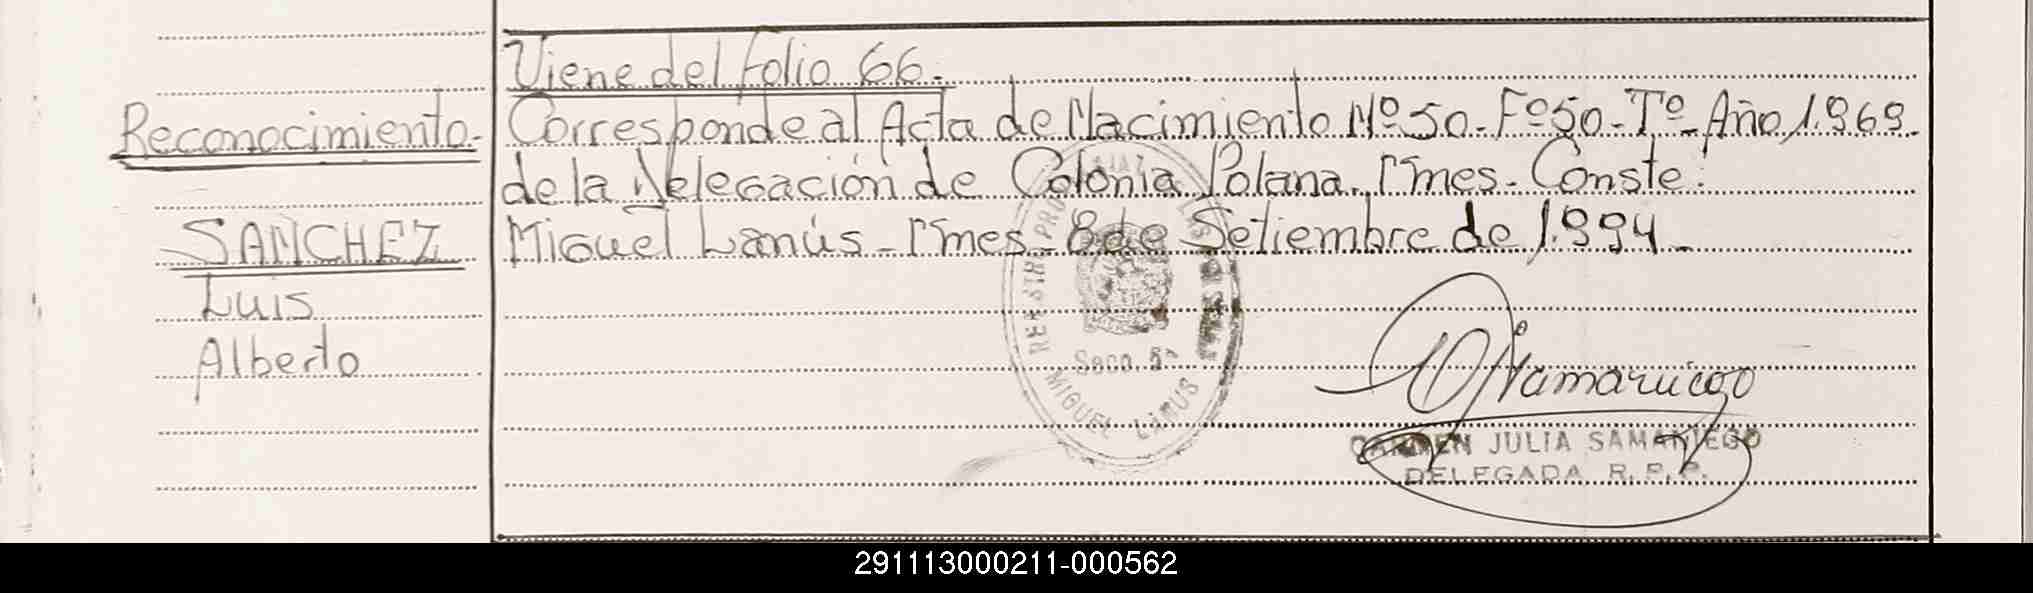 Viene del folio 66.
Reconocimiento.
Corresponde al Acta de Nacimiento Nº 50. Fº 50. Tº. Año 1.969.
de la Delegación de Colonia Polana. Mnes. Conste:
SANCHEZ
Miguel Lanús - Mnes - 8 de Setiembre de 1.994.
Luis
Alberto
Secc. 5ª
MIGUEL LANUS
CARMEN JULIA SAMANIEGO
DELEGADA R.P.P.
291113000211-000562